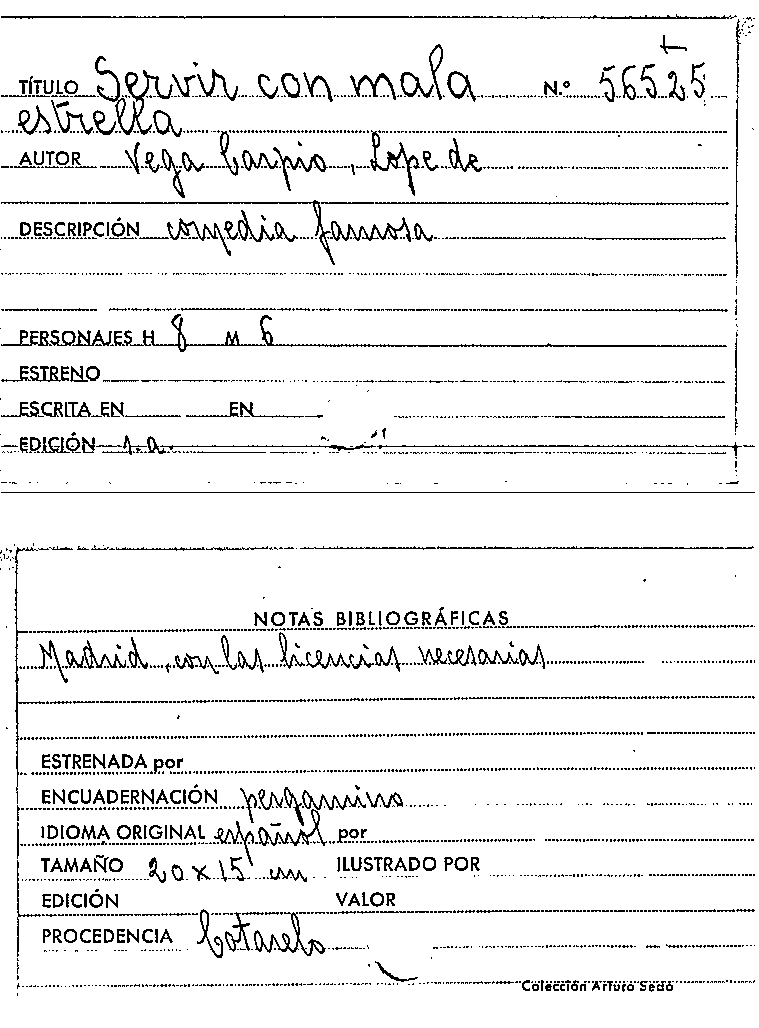 TÍTULO Servir con mala N.º 56525
estrella
AUTOR Vega Carpio, Lope de
DESCRIPCIÓN comedia famosa
PERSONAJES H 8 M 6
ESTRENO
ESCRITA EN EN
EDICIÓN 1.a
NOTAS BIBLIOGRÁFICAS
Madrid, con las licencias necesarias
ESTRENADA por
ENCUADERNACIÓN pergamino
IDIOMA ORIGINAL español por
TAMAÑO 20 x 15 cm ILUSTRADO POR
EDICIÓN VALOR
PROCEDENCIA Cotarelo
Colección Arturo Sedó